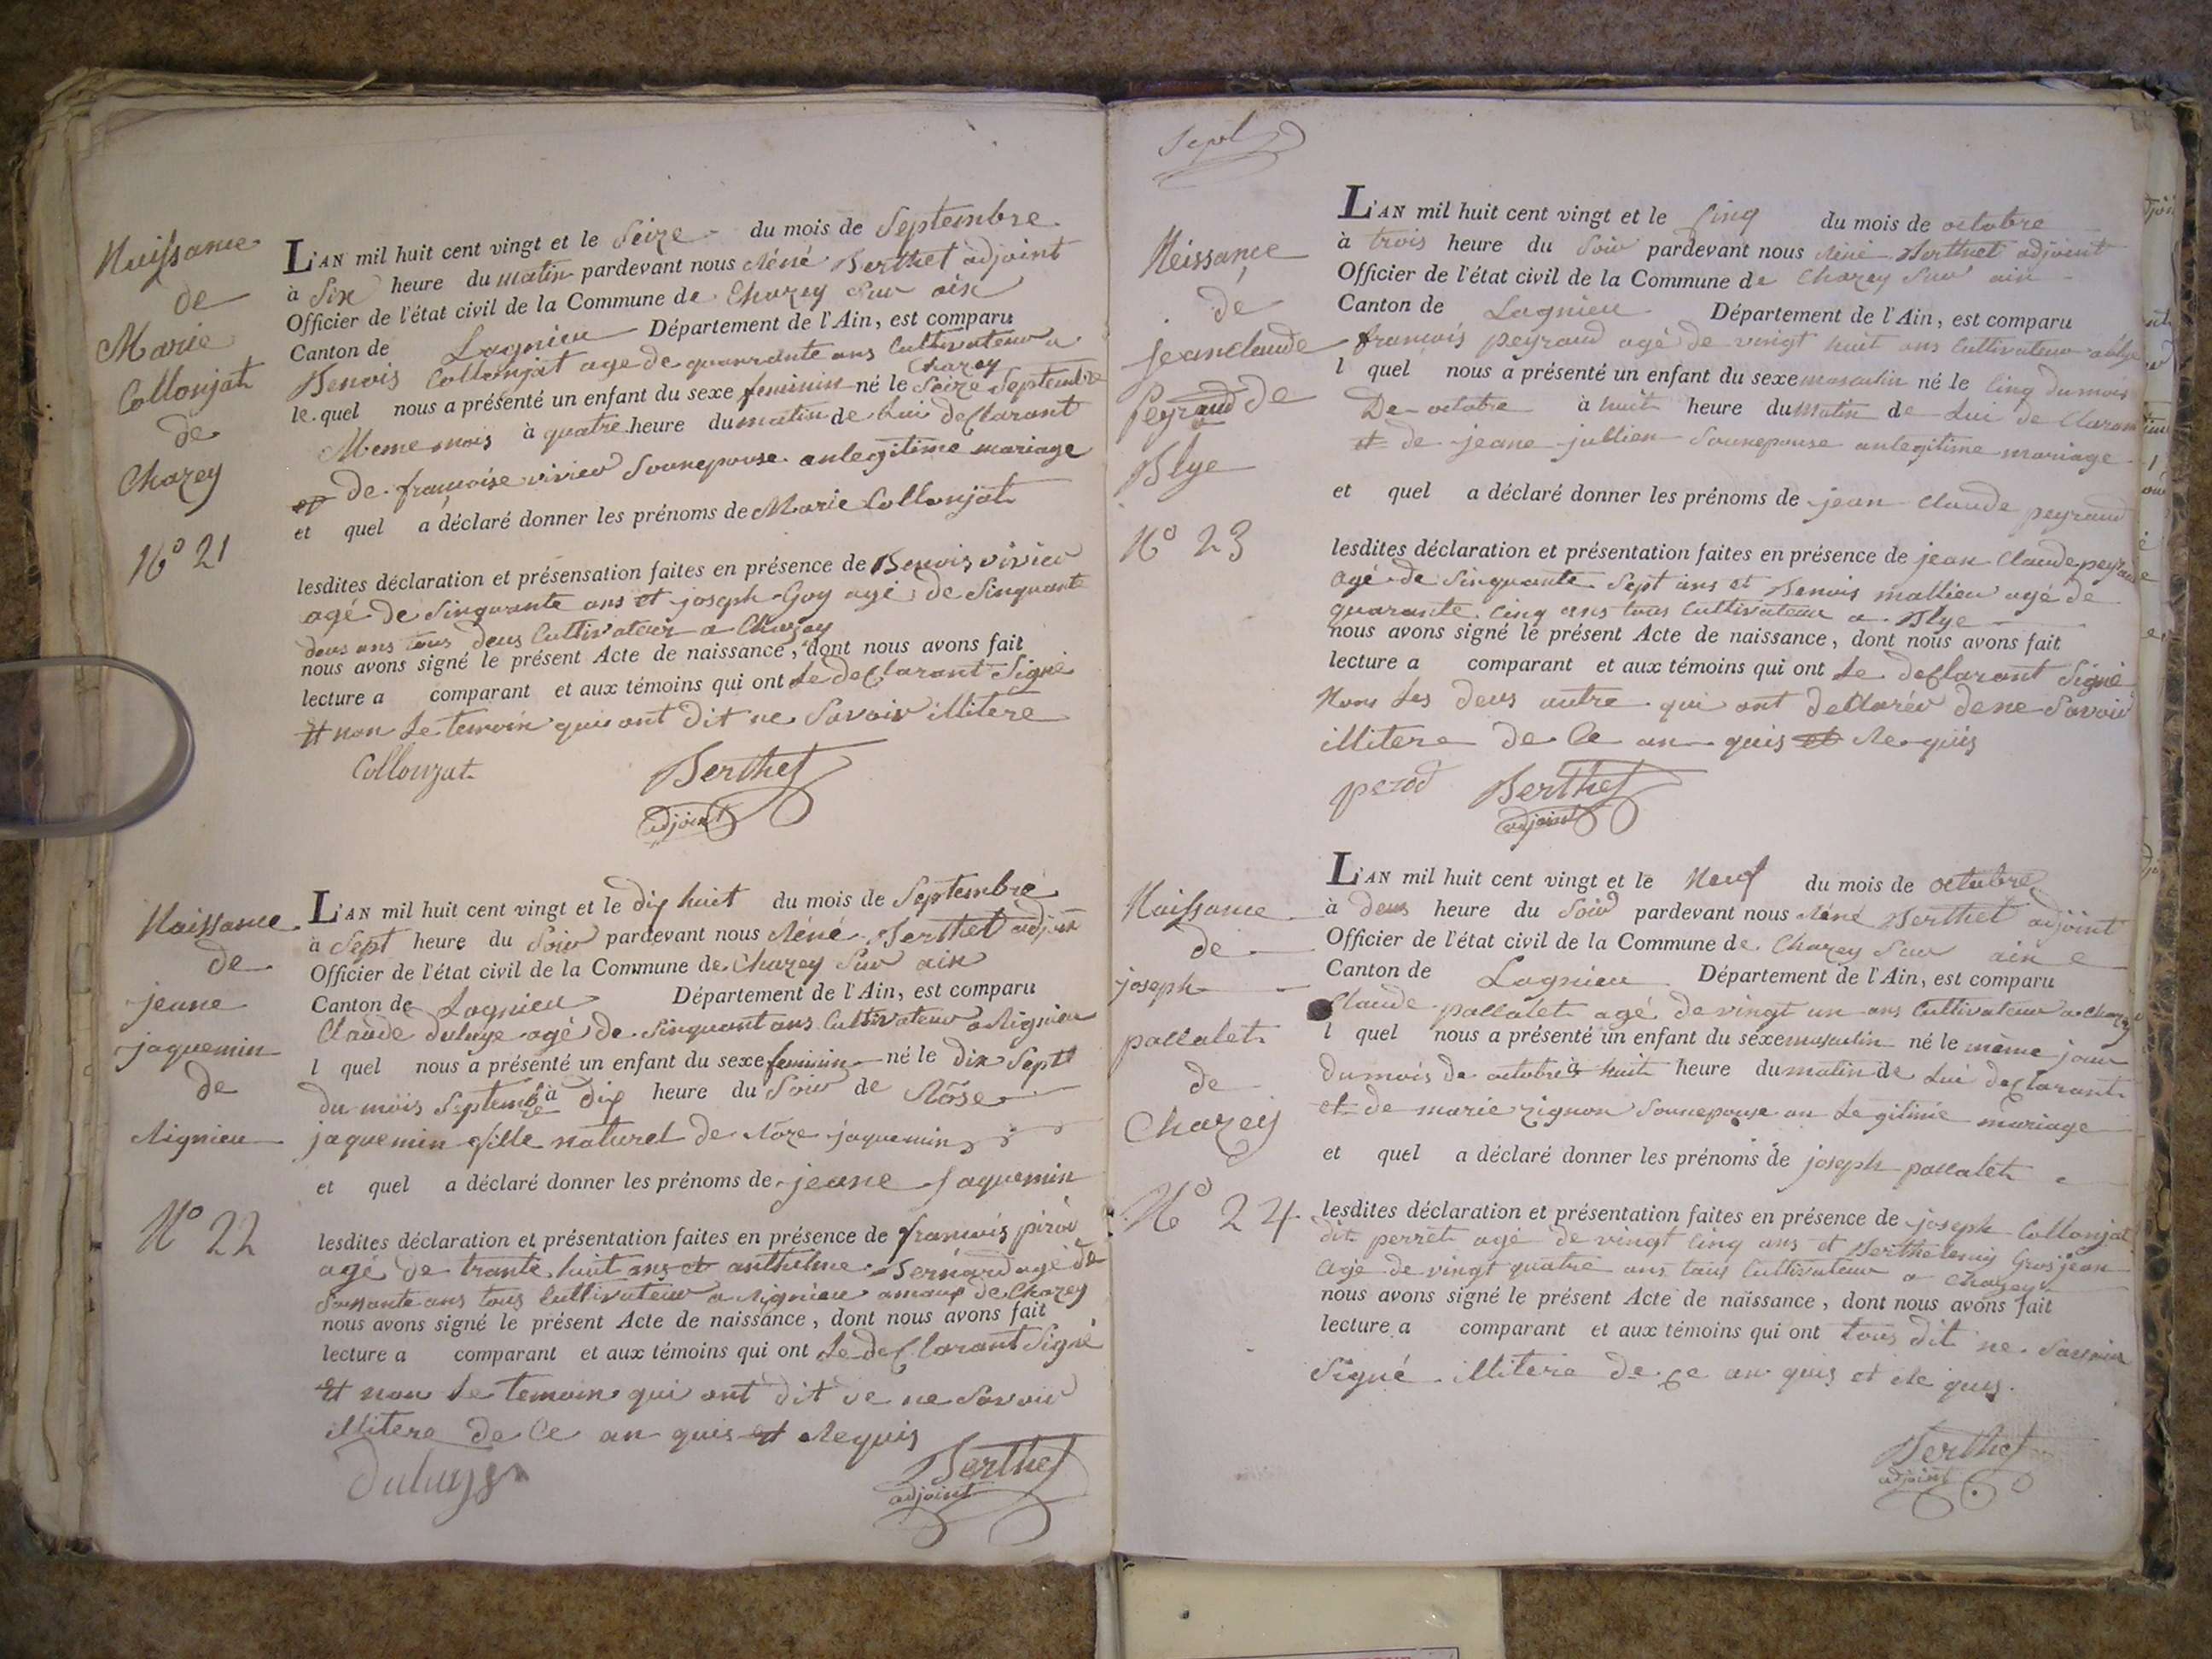 Naissance
de
Marie
Collonjat
de
Chazey
N° 21
L'AN mil huit cent vingt et le Seize du mois de Septembre
à Six heure du matin pardevant nous Réné Berthet adjoint
Officier de l'état civil de la Commune de Chazey Sur ain
Canton de Lagnieu Département de l'Ain, est comparu
Benois Collonjat age de quanrante ans Cultivateur a
Chazey
le quel nous a présenté un enfant du sexe feminin né le Seize Septembre
Meme mois à quatre heure du matin de Lui declarant
et de francoise vivier Sonnepouse anlegitime mariage
et quel a déclaré donner les prénoms de Marie Collonjat
lesdites déclaration et présensation faites en présence de Benois vivier
agé de Sinquante ans et joseph Goy agé de Sinquante
deus ans tous deus Cultivateur a Chazey
nous avons signé le présent Acte de naissance, dont nous avons fait
lecture a comparant et aux témoins qui ont Le declarant Signé
Et non Le temoin qui ont Dit ne Savoir illitere
Collonjat Berthet
adjoint
Naissance
de
jeane
jaquemin
de
Rignieu
N° 22
L'AN mil huit cent vingt et le dix huit du mois de Septembre
à Sept heure du Soir pardevant nous Réné Berthet adjoint
Officier de l'état civil de la Commune de Chazey Sur ain
Canton de Lagnieu Département de l'Ain, est comparu
Claude Duluye agé de Sinquant ans Cultivateur a Rignieu
l quel nous a présenté un enfant du sexe feminin né le dix Sept
du mois Septembre à Dix heure du Soir de Rôse
jaquemin fille naturel de Roze jaquemin
et quel a déclaré donner les prénoms de jeane jaquemin
lesdites déclaration et présentation faites en présence de francois
agé de trante huit ans et anthelme Bernard agé de
Soissante ans tous Cultivateur a Rignieu de Chazey
nous avons signé le présent Acte de naissance, dont nous avons fait
lecture a comparant et aux témoins qui ont Le declarant Signé
Et non Le temoin qui ont dit de ne Savoir
illitere de Ce an quis et Requis
Berthet
adjoint
Neissance
de
jeanclaude
peyraud de
Blye
N° 23
L'AN mil huit cent vingt et le Cinq du mois de octobre
à trois heure du Soir pardevant nous Réné Berthet adjoint
Officier de l'état civil de la Commune de Chazey Sur ain
Canton de Lagnieu Département de l'Ain, est comparu
francois peyraud agé de vingt huit ans Cultivateur a blye
l quel nous a présenté un enfant du sexe masculin né le Cinq du mois
De octobre à huit heure du Matin de Lui de Clarant
et de jeane jullien Sonnepouse anlegitime mariage
et quel a déclaré donner les prénoms de jean Claude peyraud
lesdites déclaration et présentation faites en présence de jean Claude peyraud
agé de Sinquante Sept ans et Benois mallieu agé de
quarante Cinq ans tous Cultivateur a Blye
nous avons signé le présent Acte de naissance, dont nous avons fait
lecture a comparant et aux témoins qui ont Le declarant Signé
Non Les deus autre qui ont declarér dene Savoir
illitere de Ce an quis et Requis
perod Berthet
adjoint
Naissance
de
joseph
pallatet
de
Chazey
N° 24
L'AN mil huit cent vingt et le Neuf du mois de octobre
à deus heure du Soir pardevant nous Réné Berthet adjoint
Officier de l'état civil de la Commune de Chazey Sur ain
Canton de Lagnieu Département de l'Ain, est comparu
Claude pallatet agé de vingt un ans Cultivateur a Chazey
l quel nous a présenté un enfant du sexe masculin né le même jour
du mois de octobre à huit heure du matin de Lui declarant
et de marie rignon Sonnepouse an Legitime mariage
et quel a déclaré donner les prénoms de joseph pallatet
lesdites déclaration et présentation faites en présence de joseph Collonjat
dit perret agé de vingt Cinq ans et Berthelemy Grosjean
agé de vingt quatre ans tous Cultivateur a Chazey
nous avons signé le présent Acte de naissance, dont nous avons fait
lecture a comparant et aux témoins qui ont tous dit ne Savoir
Signé illitere de Ce an quis et Re quis.
Berthet
adjoint